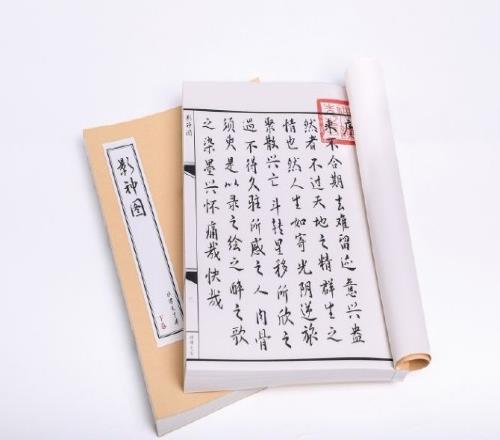 序
来不合期去难留迹意兴盎
然者不过天地之精群生之
情也然人生如寄光阴逆旅
聚散兴亡斗转星移所欣之
遇不待久驻所感之人肉骨
须臾是以录之绘之醉之歌
之染墨兴怀痛哉快哉
影神图
影神图